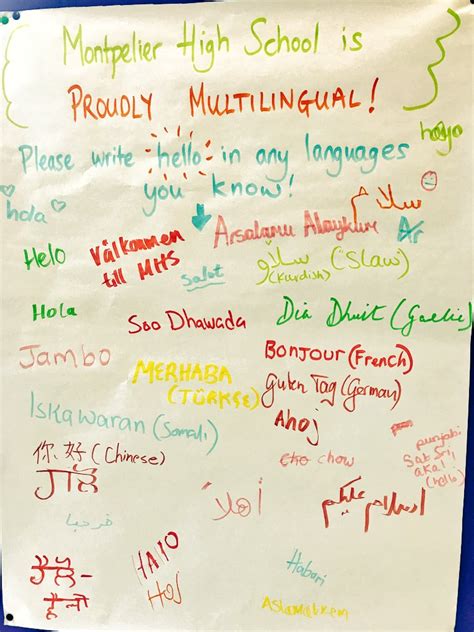 Montpelier High School is
PROUDLY MULTILINGUAL!
hoyo
Please write hello in any languages
you know!
hola
سلام
Arsalamu Alaykum
Helo
Välkommen
till MHS
salut
سلاو
(Kurdish) (Slaw)
Hola
Soo Dhawada
Dia Dhuit (Gaelic)
Jambo
MERHABA
(TÜRKÇE)
Bonjour (French)
Guten Tag (German)
Iskawaran (Somali)
Ahoj
你好 (Chinese)
cho chow
punjabi
Sat Sri
akal
(hello)
ਹੈਲੋ
أهلاً
السلام عليكم
مرحبا
HALO
HOJ
Habari
Aslamalikem